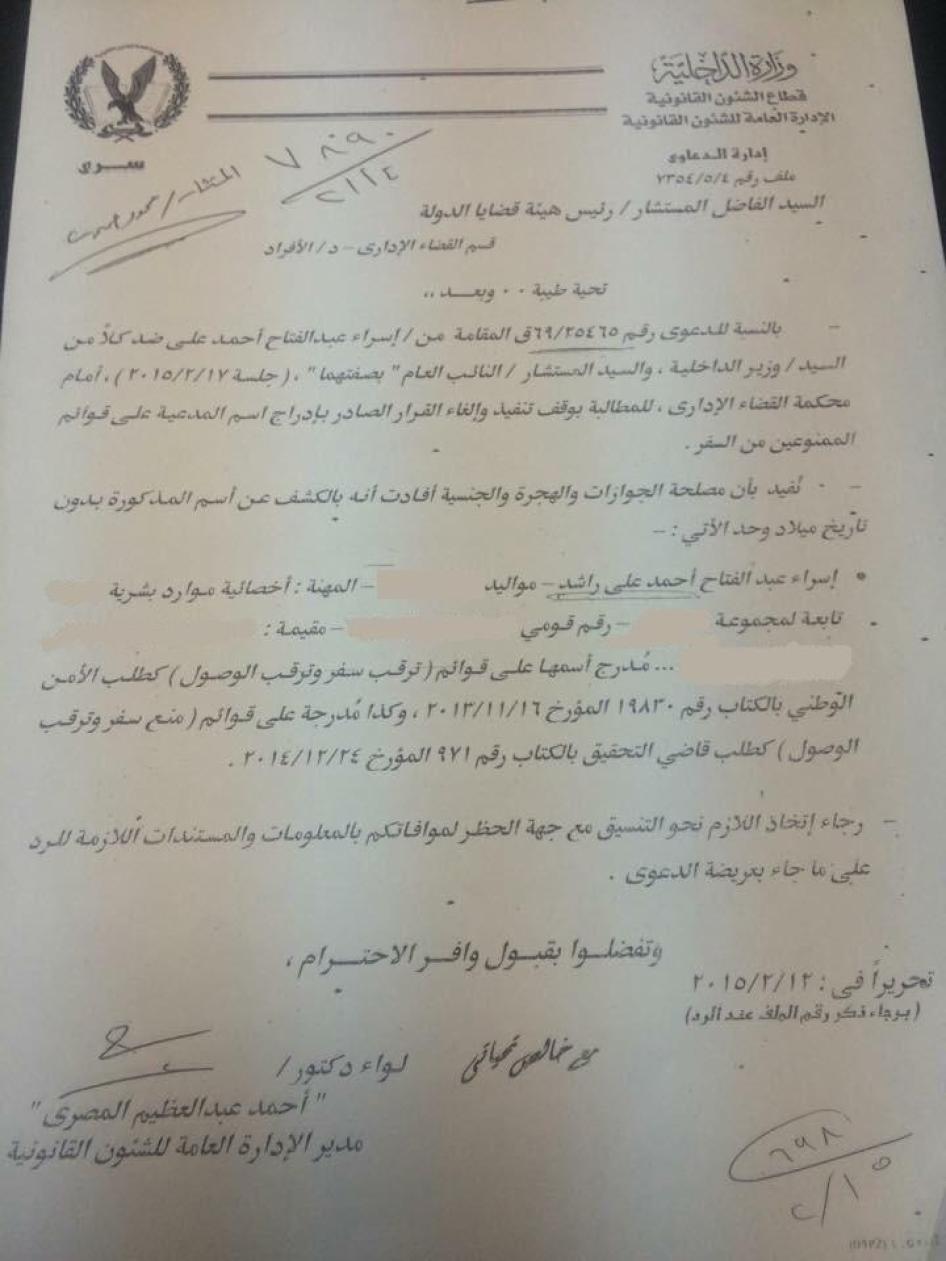 وزارة الداخلية
قطاع الشئون القانونية
الإدارة العامة للشئون القانونية
إدارة الدعاوى
ملف رقم ٧٣٥٤/٥/٤
سرى
٧٨٩٠
المستشار / محمود
السيد الفاضل المستشار / رئيس هيئة قضايا الدولة
قسم القضاء الإدارى – د/ الأفراد
تحية طيبة ٠٠ وبعد ،،
– بالنسبة للدعوى رقم ٦٩/٢٥٤٦٥ق المقامة من / إسراء عبدالفتاح أحمد على ضد كلاً من
السيد / وزير الداخلية ، والسيد المستشار / النائب العام " بصفتهما " ، ( جلسة ٢٠١٥/٢/١٧ ) ، أمام
محكمة القضاء الإدارى ، للمطالبة بوقف تنفيذ وإلغاء القرار الصادر بإدراج اسم المدعية على قوائم
الممنوعين من السفر .
– نُفيد بأن مصلحة الجوازات والهجرة والجنسية أفادت أنه بالكشف عن أسم المذكورة بدون
تاريخ ميلاد وجد الأتي : –
• إسراء عبد الفتاح أحمد على راشد – مواليد – المهنة : أخصائية موارد بشرية
تابعة لمجموعة – رقم قومي – مقيمة :
... مُدرج أسمها على قوائم ( ترقب سفر وترقب الوصول ) كطلب الأمن
الوطني بالكتاب رقم ١٩٨٣٠ المؤرخ ٢٠١٣/١١/١٦ ، وكذا مُدرجة على قوائم ( منع سفر وترقب
الوصول ) كطلب قاضي التحقيق بالكتاب رقم ٩٧١ المؤرخ ٢٠١٤/١٢/٢٤ .
– رجاء إتخاذ اللازم نحو التنسيق مع جهة الحظر لموافاتكم بالمعلومات والمستندات اللازمة للرد
على ما جاء بعريضة الدعوى .
وتفضلوا بقبول وافر الاحترام ،
تحريراً فى : ٢٠١٥/٢/١٢
(برجاء ذكر رقم الملف عند الرد)
مع خالص تحياتى
لواء دكتور /
" أحمد عبدالعظيم المصرى "
مدير الإدارة العامة للشئون القانونية
٦٩٨